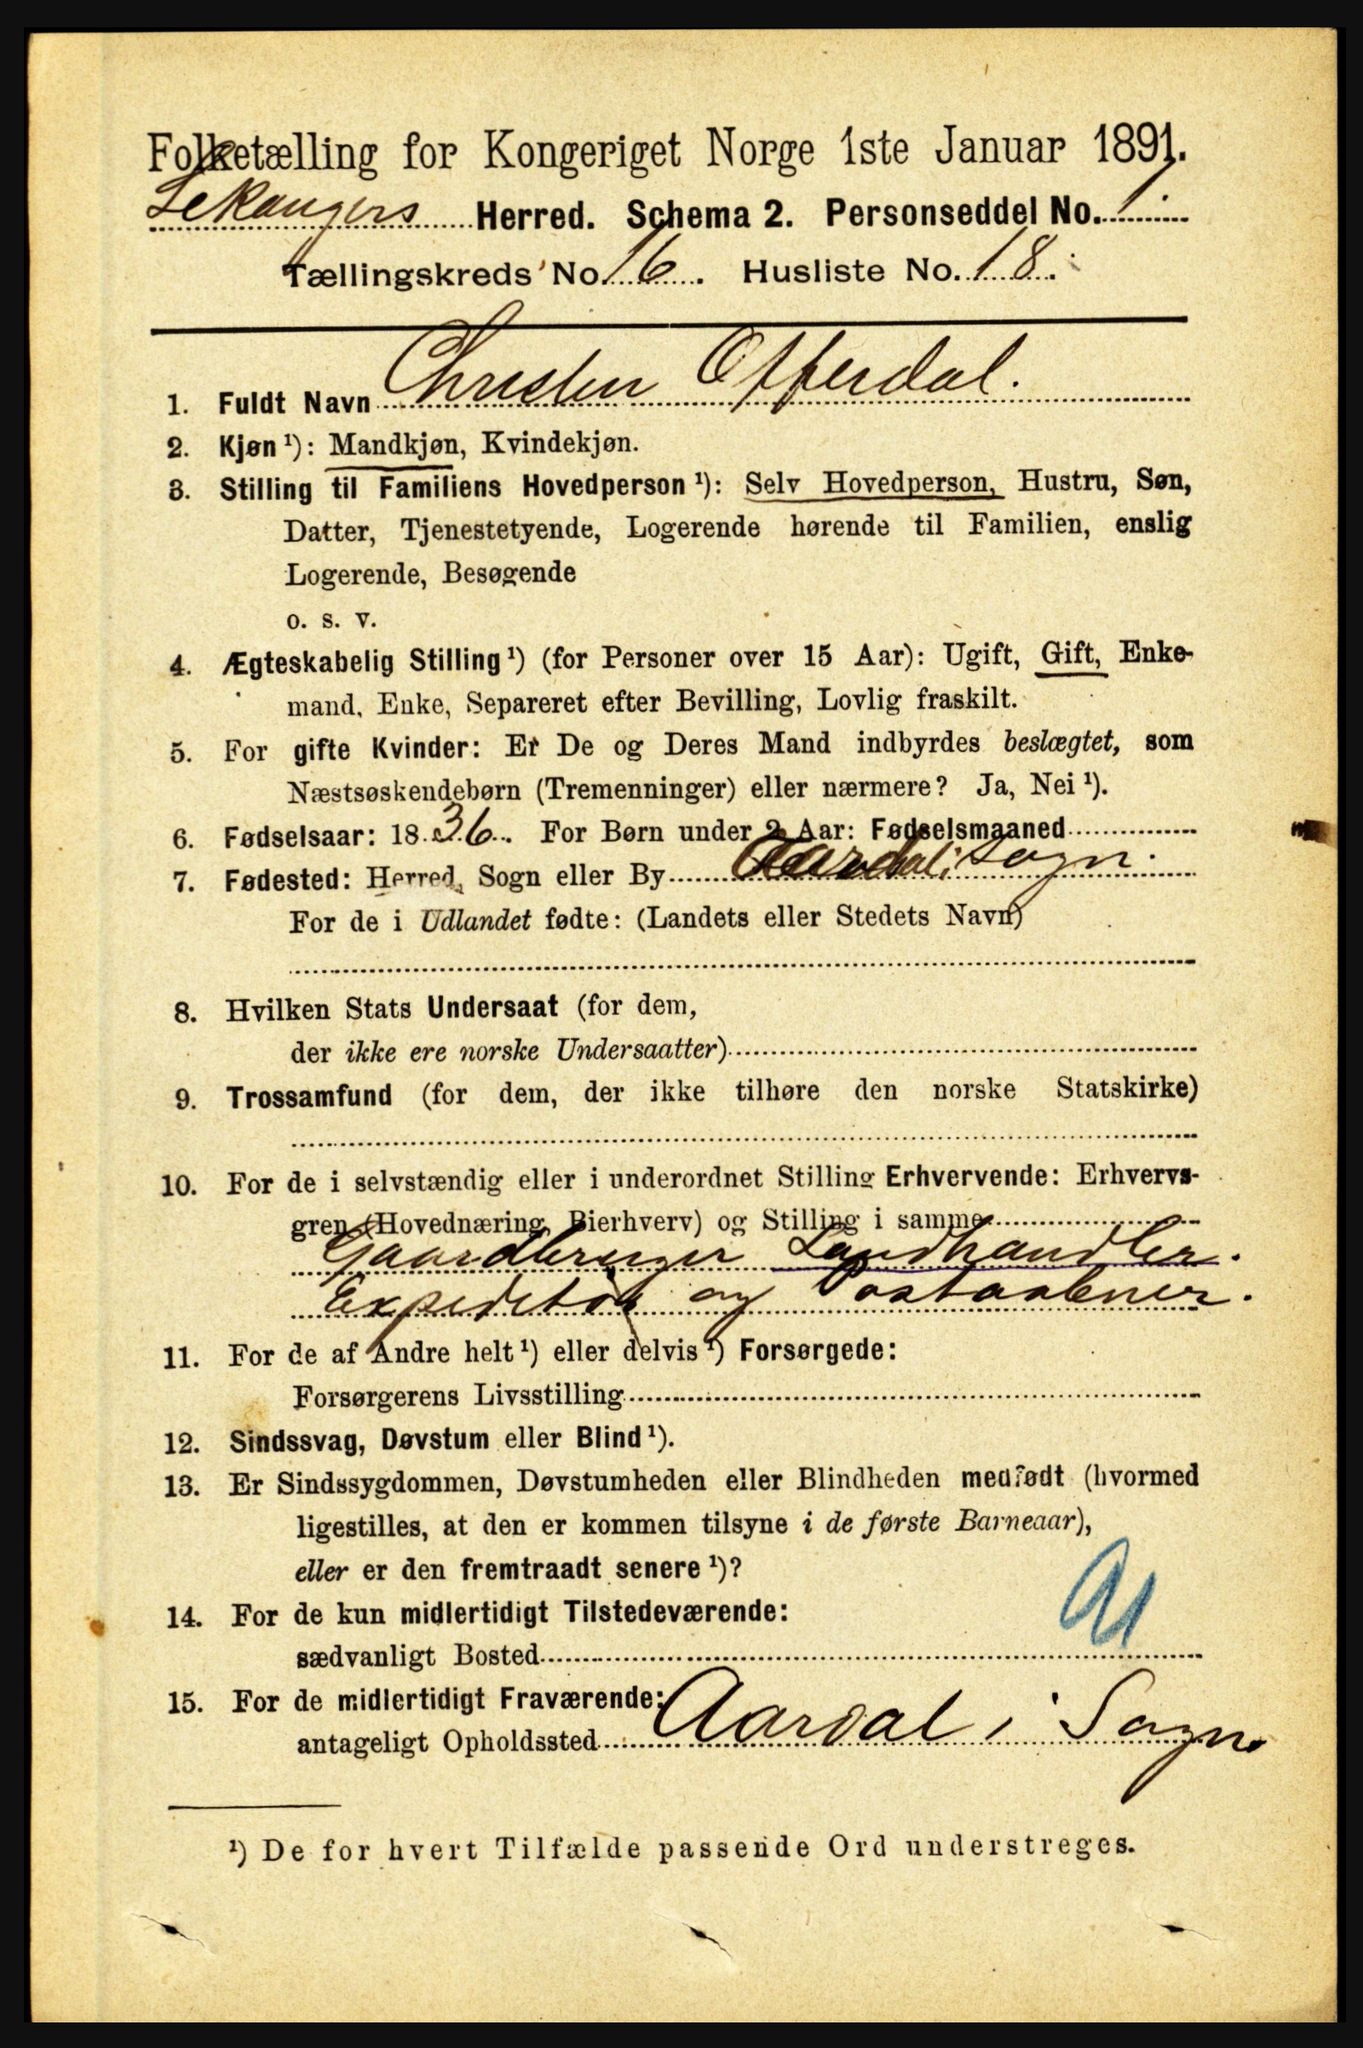 Folketælling for Kongeriget Norge 1ste Januar 1891.
Lekangers Herred. Schema 2. Personseddel No. 1.
Tællingskreds No. 16. Husliste No. 18.
1. Fuldt Navn Christen Offerdal.
2. Kjøn ¹): Mandkjøn, Kvindekjøn.
3. Stilling til Familiens Hovedperson ¹): Selv Hovedperson, Hustru, Søn,
Datter, Tjenestetyende, Logerende hørende til Familien, enslig
Logerende, Besøgende
o. s. v.
4. Ægteskabelig Stilling ¹) (for Personer over 15 Aar): Ugift, Gift, Enke-
mand, Enke, Separeret efter Bevilling, Lovlig fraskilt.
5. For gifte Kvinder: Er De og Deres Mand indbyrdes beslægtet, som
Næstsøskendebørn (Tremenninger) eller nærmere? Ja, Nei ¹).
6. Fødselsaar: 1836. For Børn under 2 Aar: Fødselsmaaned
7. Fødested: Herred, Sogn eller By Aardal i Sogn.
For de i Udlandet fødte: (Landets eller Stedets Navn)
8. Hvilken Stats Undersaat (for dem,
der ikke ere norske Undersaatter)
9. Trossamfund (for dem, der ikke tilhøre den norske Statskirke)
10. For de i selvstændig eller i underordnet Stilling Erhvervende: Erhvervs-
gren (Hovednæring, Bierhverv) og Stilling i samme
Gaardbruger Landhandler.
Expeditør og Postaabner.
11. For de af Andre helt ¹) eller delvis ¹) Forsørgede:
Forsørgerens Livsstilling
12. Sindssvag, Døvstum eller Blind ¹).
13. Er Sindssygdommen, Døvstumheden eller Blindheden medfødt (hvormed
ligestilles, at den er kommen tilsyne i de første Barneaar),
eller er den fremtraadt senere ¹)?
14. For de kun midlertidigt Tilstedeværende:
sædvanligt Bosted
15. For de midlertidigt Fraværende:
antageligt Opholdssted Aardal i Sogn.
¹) De for hvert Tilfælde passende Ord understreges.